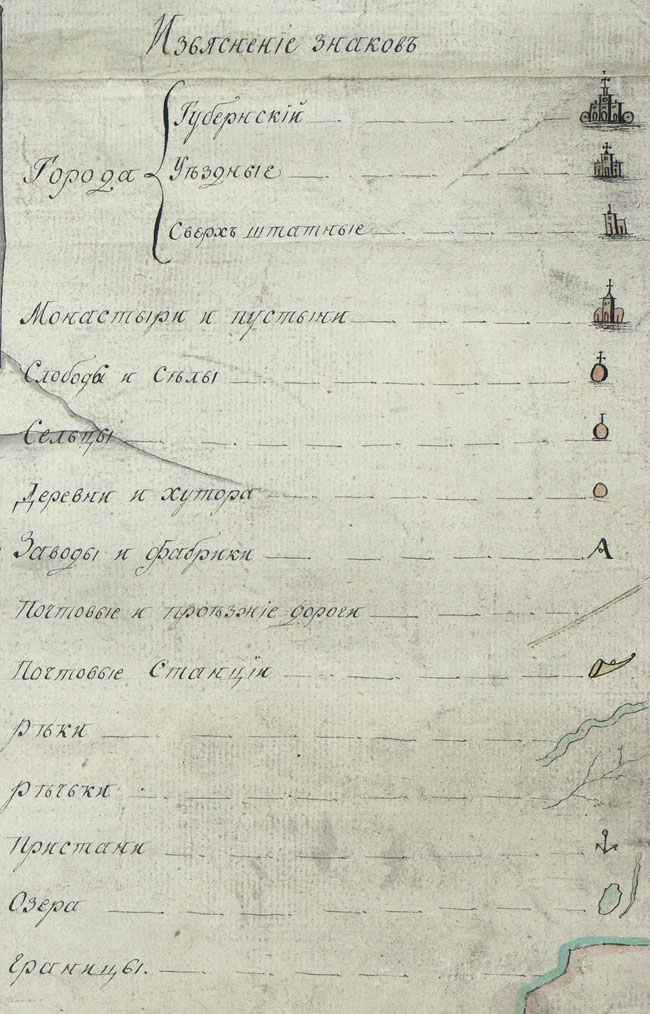 Изъясненіе знаковъ
Губернскій
Города
Уѣздные
Сверхъ штатные
Монастыри и пустыни
Слободы и Сѣлы
Сельцы
Деревни и хутора
Заводы и фабрики
А
Почтовые и проѣзжіе дороги
Почтовые Станціи
Рѣки
Рѣчьки
Пристани
Озера
Границы.